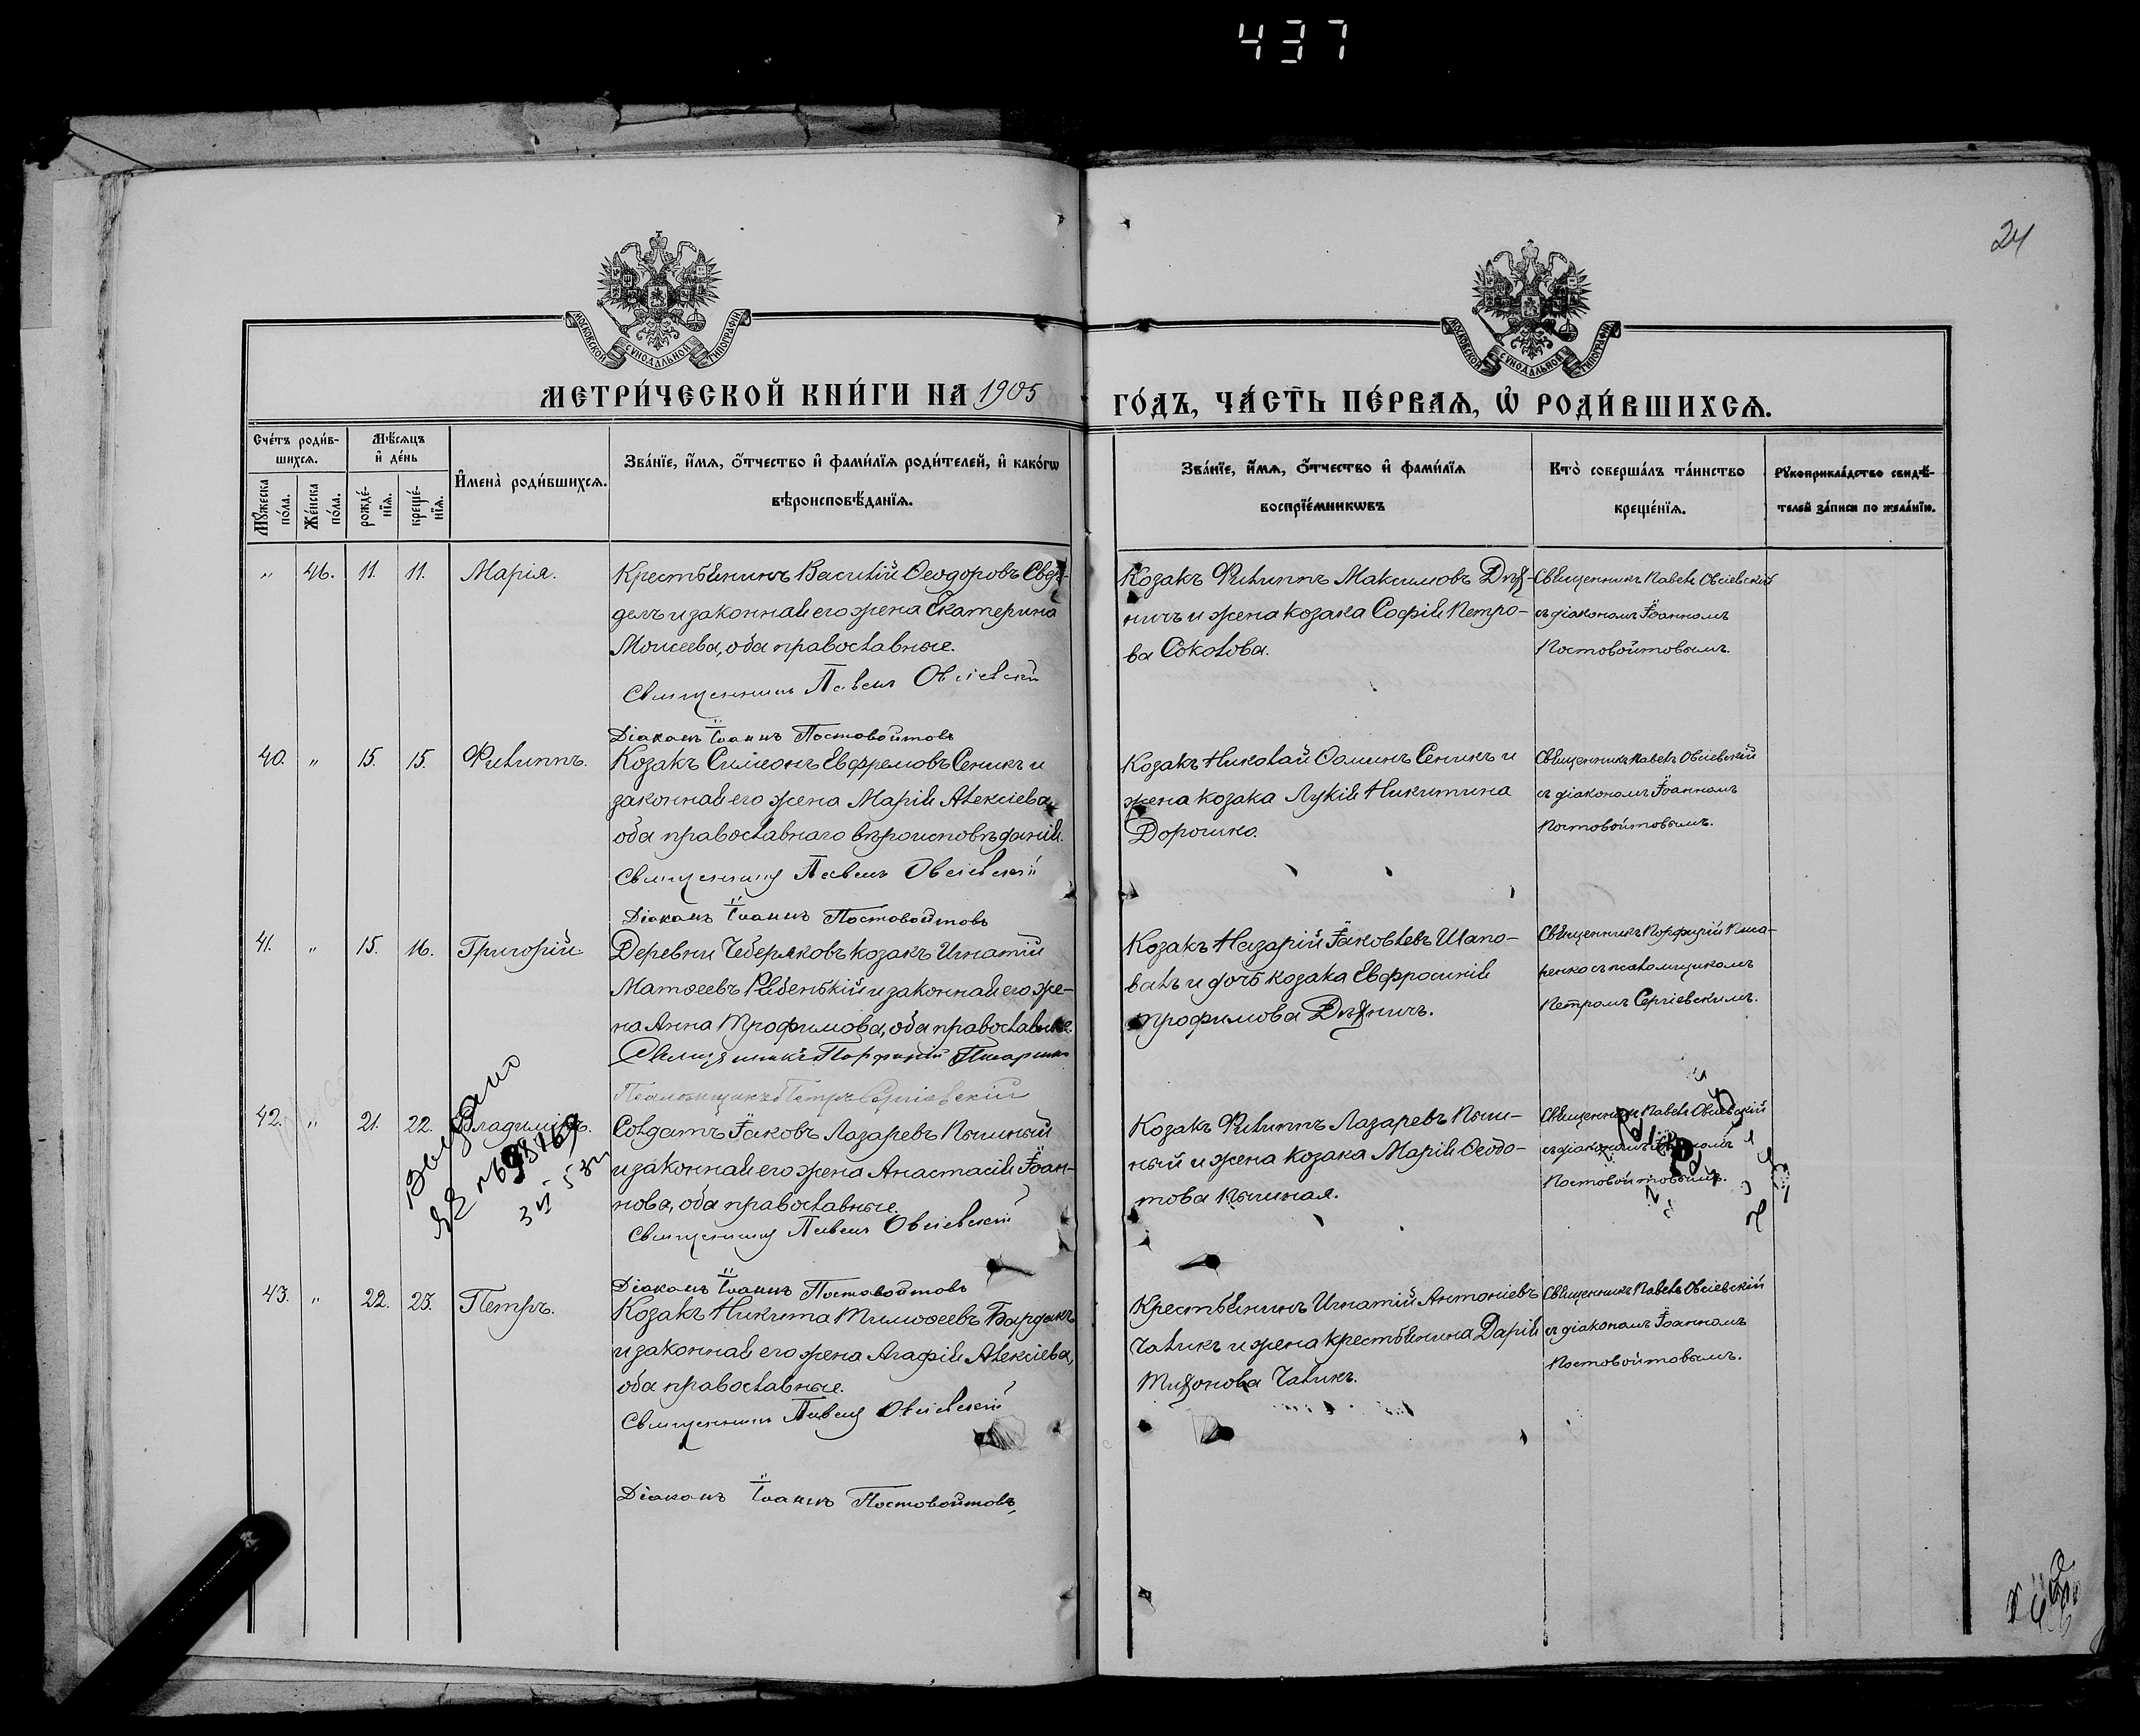 437
24
МОСКОВСКОЙ СѴНОДАЛЬНОЙ ТИПОГРАФІИ
МОСКОВСКОЙ СѴНОДАЛЬНОЙ ТИПОГРАФІИ
МЕТРИ́ЧЕСКОЙ КНИ́ГИ НА 1905
ГО́ДЪ, ЧА́СТЬ ПЕ́РВАѦ, Ѽ РОДИ́ВШИХСѦ.
Сче́тъ роди́в-
шихсѧ.
Мѣ́сѧцъ
и҆ де́нь
Мꙋ́жеска по́ла.
Же́нска по́ла.
рожде́-
нїѧ.
креще́-
нїѧ.
И҆мена̀ роди́вшихсѧ.
Зва́нїе, и҆́мѧ, ѻ҆́тчество и҆ фами́лїѧ роди́телей, и҆ како́гѡ
вѣроисповѣ́данїѧ.
Зва́нїе, и҆́мѧ, ѻ҆́тчество и҆ фами́лїѧ
воспрїе́мникѡвъ
Кто̀ соверша́лъ та́инство
креще́нїѧ.
Рꙋкоприкла́дство свидѣ́-
телей за́писи по жела́нїю.
" 46. 11. 11. Марія.
Крестьянинъ Василій Ѳеодоровъ
и законная его жена Екатерина
Моисеева, оба православные.
Священникъ Павелъ Овсіевскій
Діаконъ Іоаннъ Постовойтовъ
Козакъ Филиппъ Максимовъ Дѣх-
ничъ и жена козака Софія Петро-
ва Соколова.
Священникъ Павелъ Овсіевскій
съ діакономъ Іоанномъ
Постовойтовымъ.
40. " 15. 15. Филиппъ.
Козакъ Симеонъ Евфремовъ Сеникъ и
законная его жена Марія Алексіева,
оба православнаго вѣроисповѣданія.
Священникъ Павелъ Овсіевскій
Діаконъ Іоаннъ Постовойтовъ
Козакъ Николай Ѳоминъ Сеникъ и
жена козака Лукія Никитина
Дорошко.
Священникъ Павелъ Овсіевскій
съ діакономъ Іоанномъ
Постовойтовымъ.
41. " 15. 16. Григорій.
Деревни Чеберяковъ козакъ Игнатій
Матѳеевъ Рябенькій и законная его же-
на Анна Трофимова, оба православные.
Священникъ Порфирій Писаренко
Псаломщикъ Петръ Сергіевскій
Козакъ Назарій Іаковлевъ Шапо-
валъ и дочь козака Евфросинія
Трофимова Дѣхничъ.
Священникъ Порфирій Писа-
ренко съ псаломщикомъ
Петромъ Сергіевскимъ.
42. " 21. 22. Владиміръ.
Выдано
Солдатъ Іаковъ Лазаревъ Пышный
и законная его жена Анастасія Іоан-
нова, оба православные.
Священникъ Павелъ Овсіевскій
Діаконъ Іоаннъ Постовойтовъ
Козакъ Филиппъ Лазаревъ Пыш-
ный и жена козака Марія Ѳедо-
това Пышная.
Священникъ Павелъ Овсіевскій
съ діакономъ Іоанномъ
Постовойтовымъ.
43. " 22. 23. Петръ.
Козакъ Никита Тимоѳеевъ Бардакъ
и законная его жена Агафія Алексіева,
оба православные.
Священникъ Павелъ Овсіевскій
Діаконъ Іоаннъ Постовойтовъ
Крестьянинъ Игнатій Антоніевъ
Чаликъ и жена крестьянина Дарія
Тихонова Чаликъ.
Священникъ Павелъ Овсіевскій
съ діакономъ Іоанномъ
Постовойтовымъ.